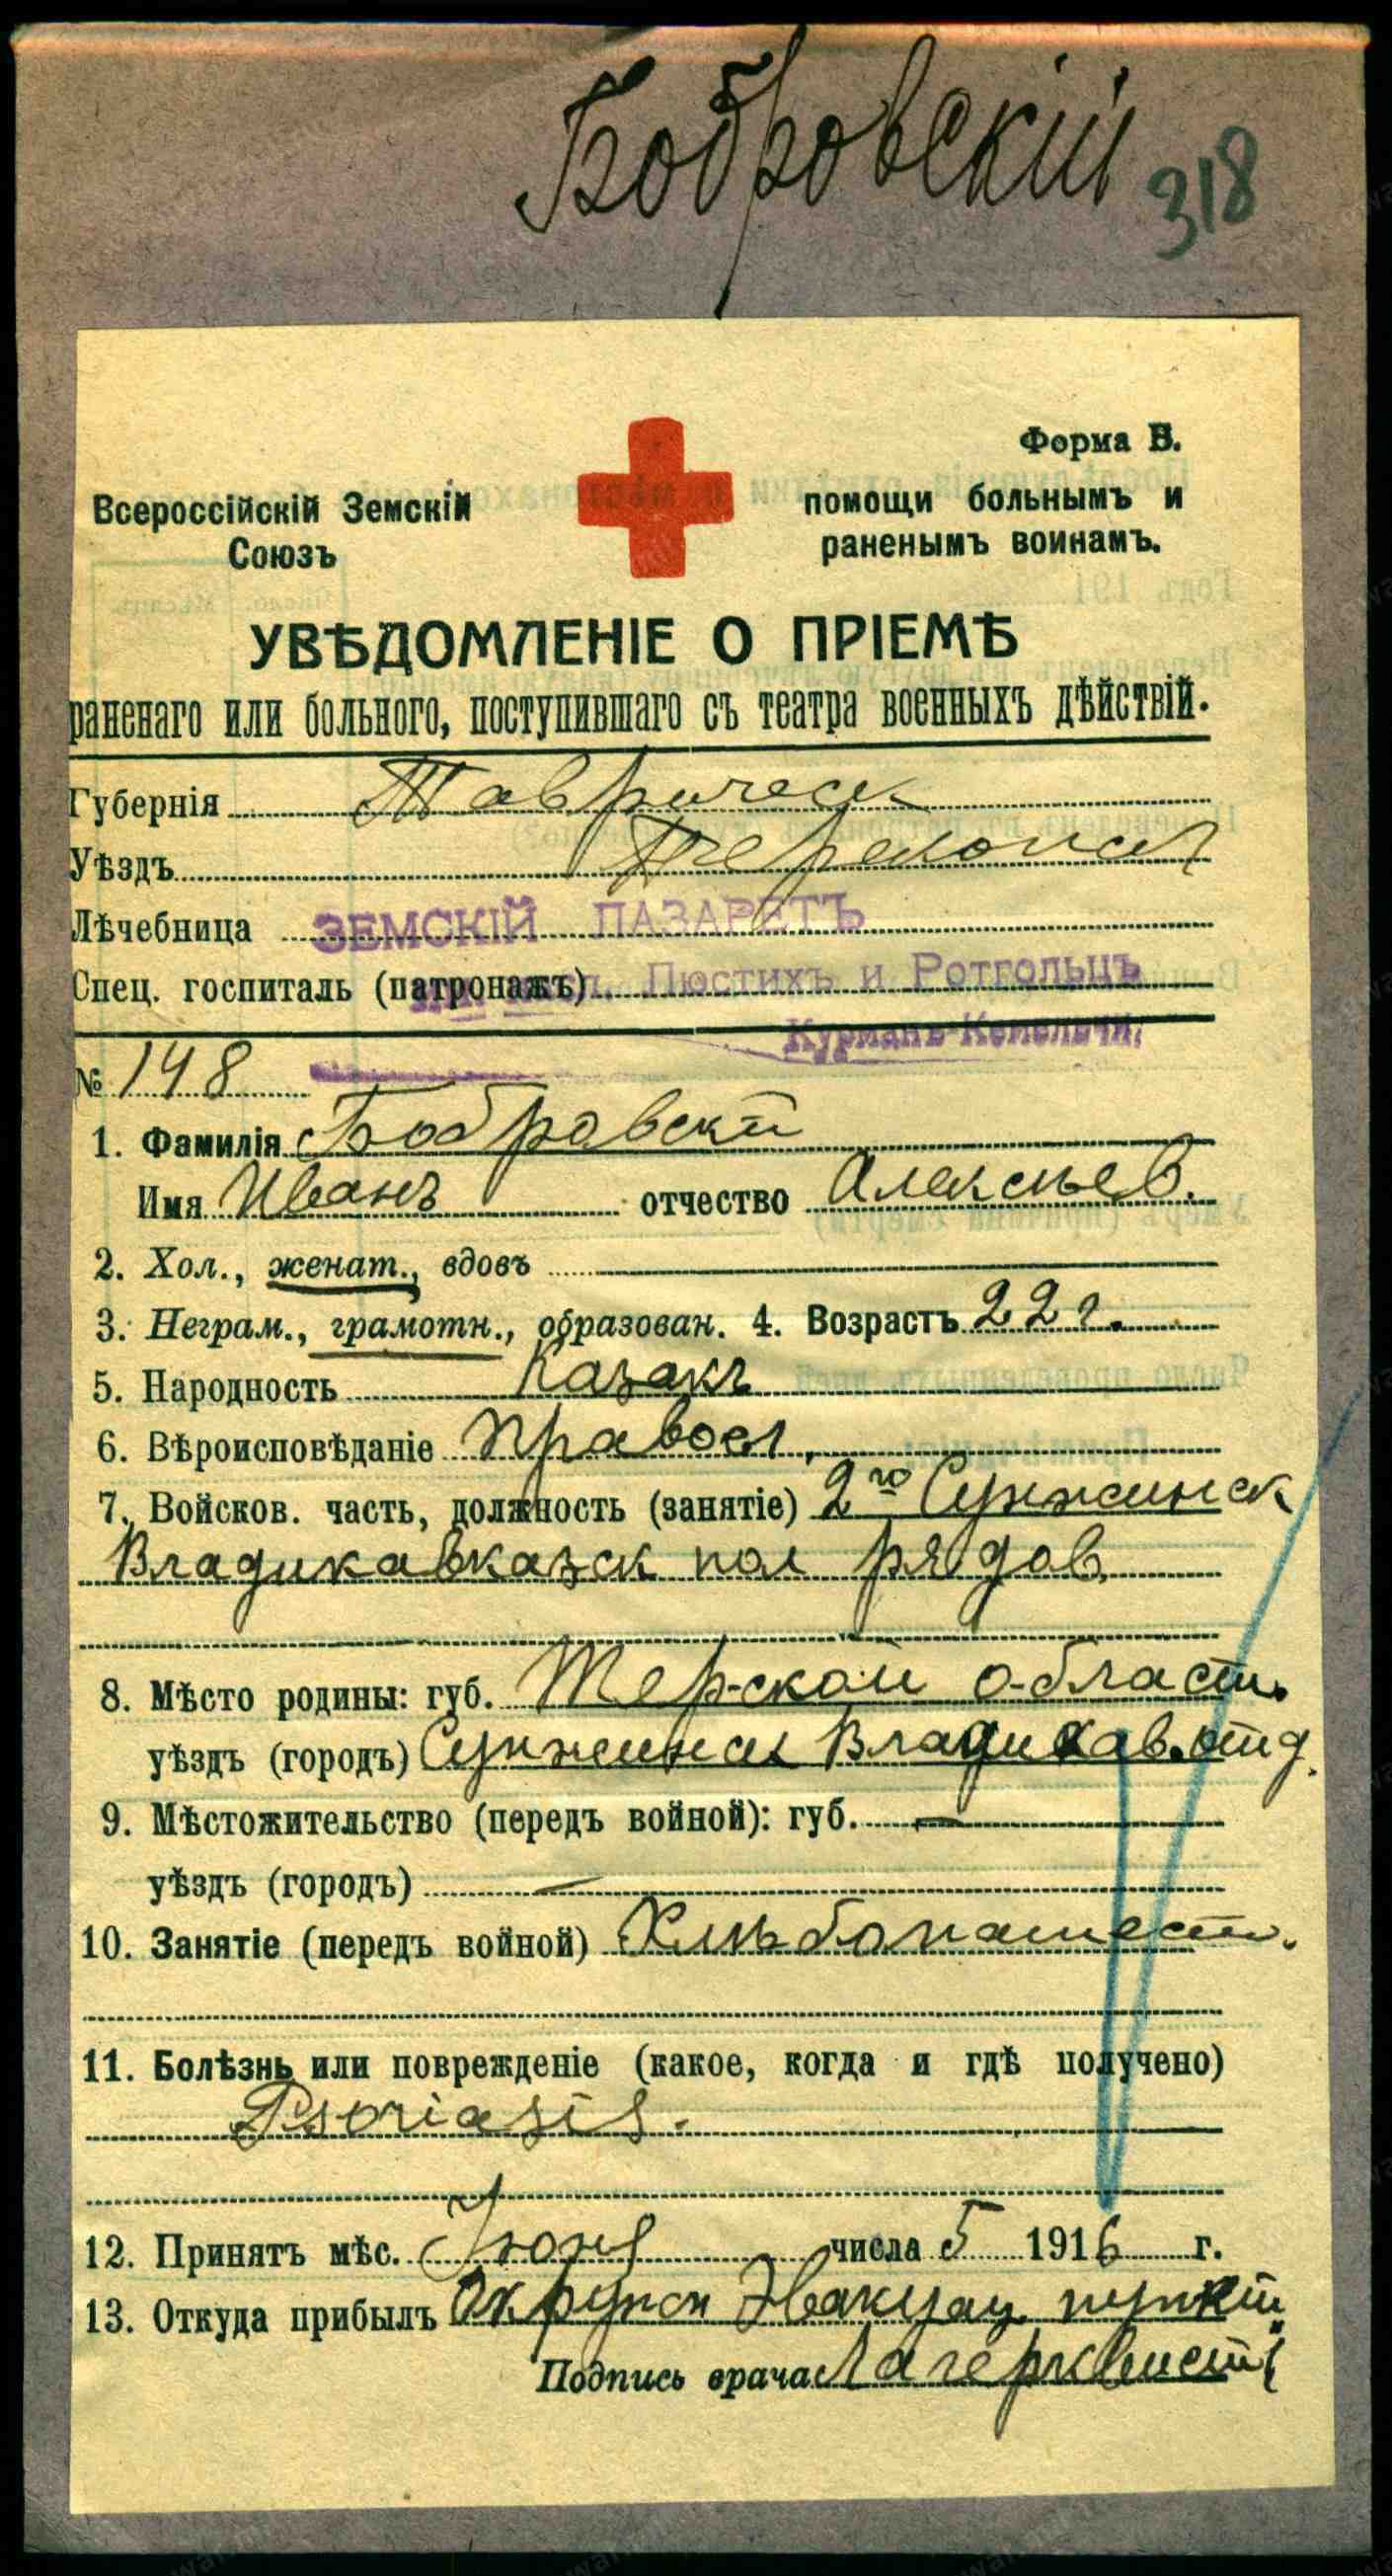 Бобровскій 318
Форма В.
Всероссійскій Земскій помощи больнымъ и
Союзъ раненымъ воинамъ.
УВѢДОМЛЕНІЕ О ПРІЕМѢ
раненаго или больного, поступившаго съ театра военныхъ дѣйствій.
Губернія Тавричеси
Уѣздъ Перекопск
Лѣчебница ЗЕМСКІЙ ЛАЗАРЕТЪ
Спец. госпиталь (патронажъ) Люстихъ и Ротгольцъ
Курманъ-Кемельчи.
№ 148
1. Фамилія Бобровскій
Имя Иванъ отчество Алексѣев.
2. Хол., женат., вдовъ
3. Неграм., грамотн., образован. 4. Возрастъ 22 г.
5. Народность Казакъ
6. Вѣроисповѣданіе Правосл.
7. Войсков. часть, должность (занятіе) 2го Сунженск
Владикавказск пол рядов.
8. Мѣсто родины: губ. Терской област.
уѣздъ (городъ) Сунженск Владикав. отд.
9. Мѣстожительство (передъ войной): губ. —
уѣздъ (городъ) —
10. Занятіе (передъ войной) Хлѣбопашест.
11. Болѣзнь или поврежденіе (какое, когда и гдѣ получено)
Psoriasis.
12. Принятъ мѣс. Іюня числа 5 1916 г.
13. Откуда прибылъ Окружн Эвакуац пункт
Подпись врача Лагерквистъ